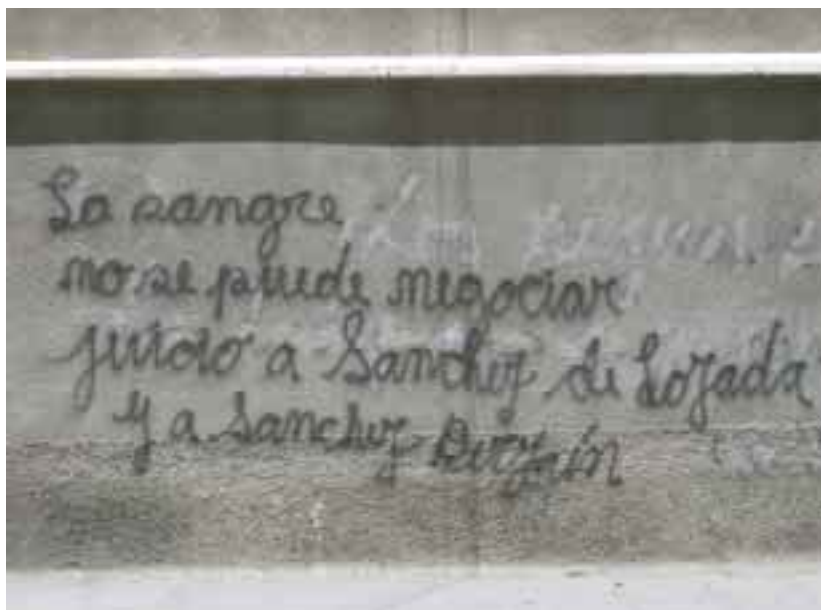 La sangre
no se puede negociar
juicio a Sanchez de Lozada
y a Sanchez Berzaín